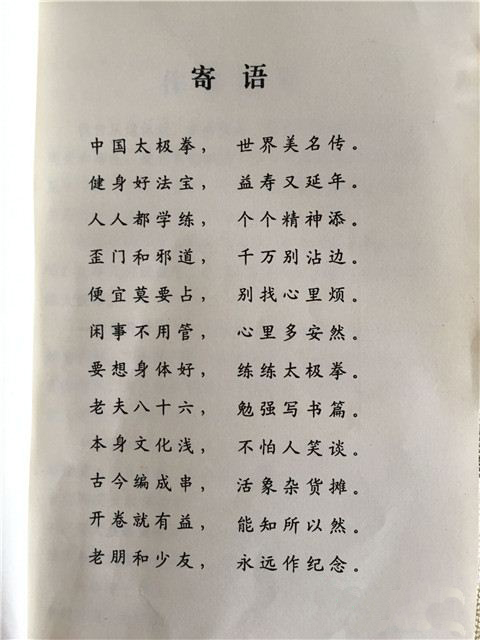 寄语
中国太极拳，世界美名传。
健身好法宝，益寿又延年。
人人都学练，个个精神添。
歪门和邪道，千万别沾边。
便宜莫要占，别找心里烦。
闲事不用管，心里多安然。
要想身体好，练练太极拳。
老夫八十六，勉强写书篇。
本身文化浅，不怕人笑谈。
古今编成串，活象杂货摊。
开卷就有益，能知所以然。
老朋和少友，永远作纪念。